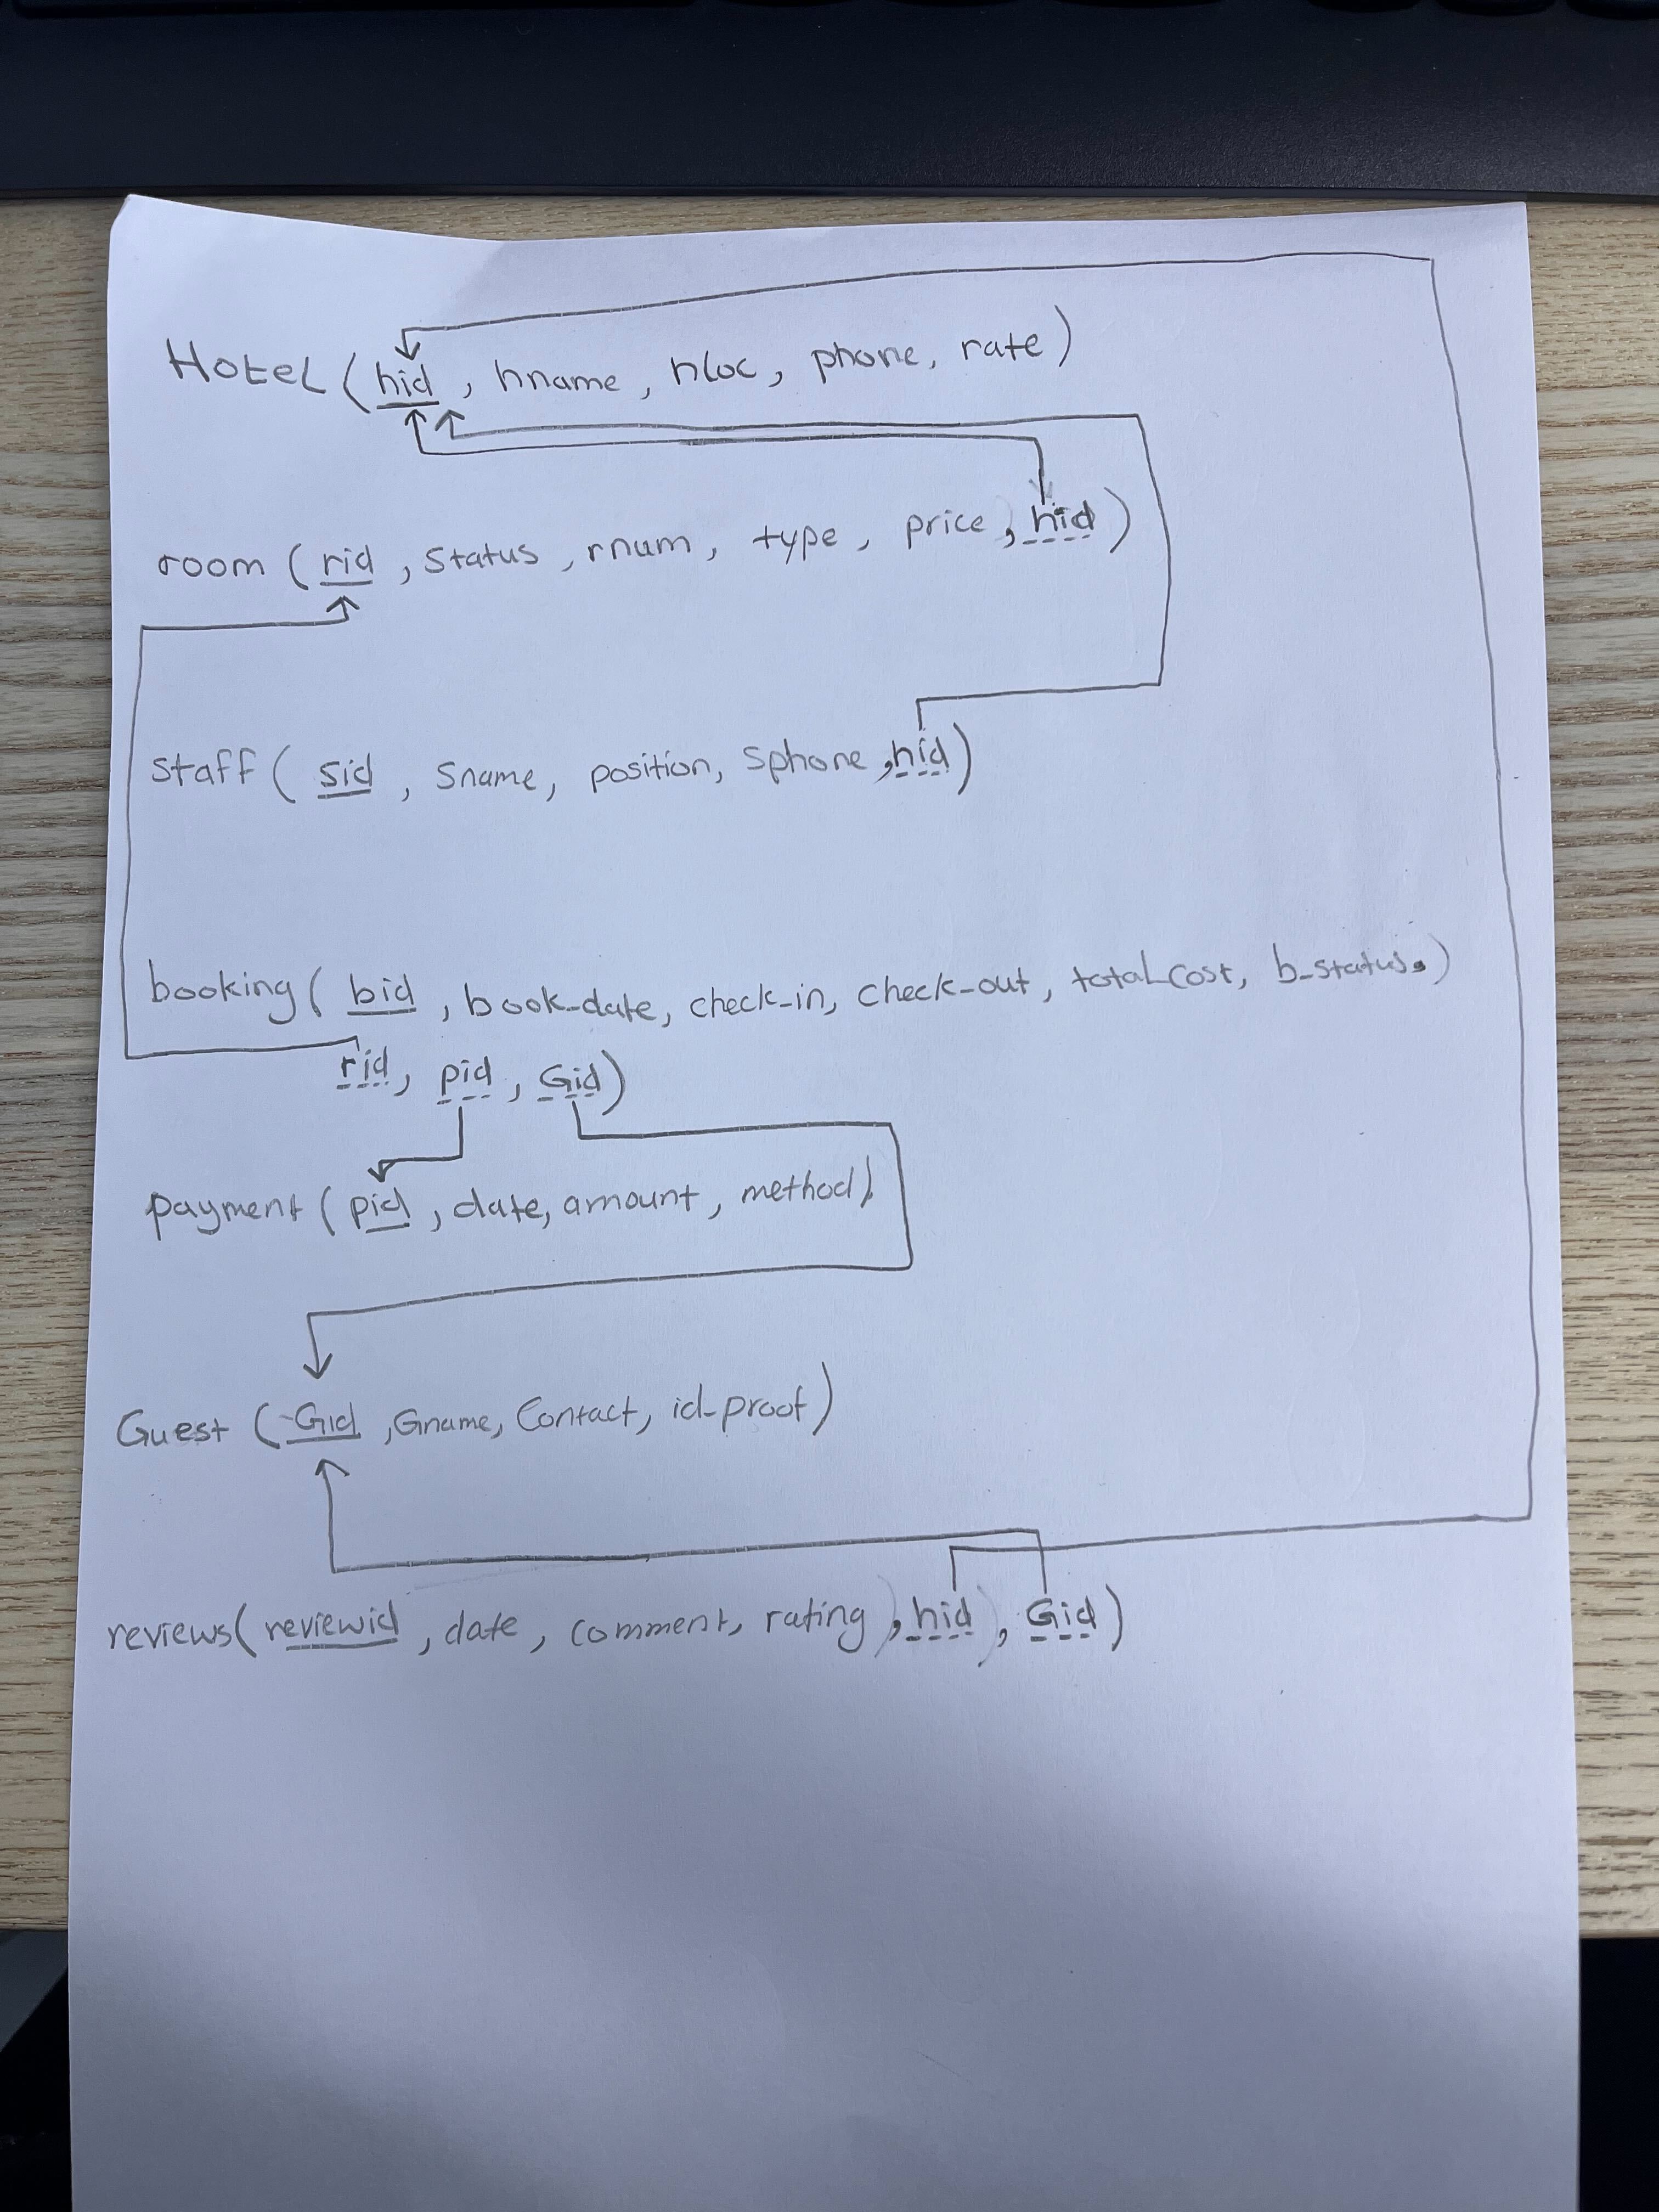 Hotel (hid, hname, hloc, phone, rate)
room (rid, status, rnum, type, price, hid)
staff (sid, sname, position, sphone, hid)
booking (bid, book-date, check-in, check-out, total-cost, b-status.)
rid, pid, Gid)
payment (pid, date, amount, method)
Guest (Gid, Gname, Contact, id-proof)
reviews (reviewid, date, comment, rating), hid), Gid)